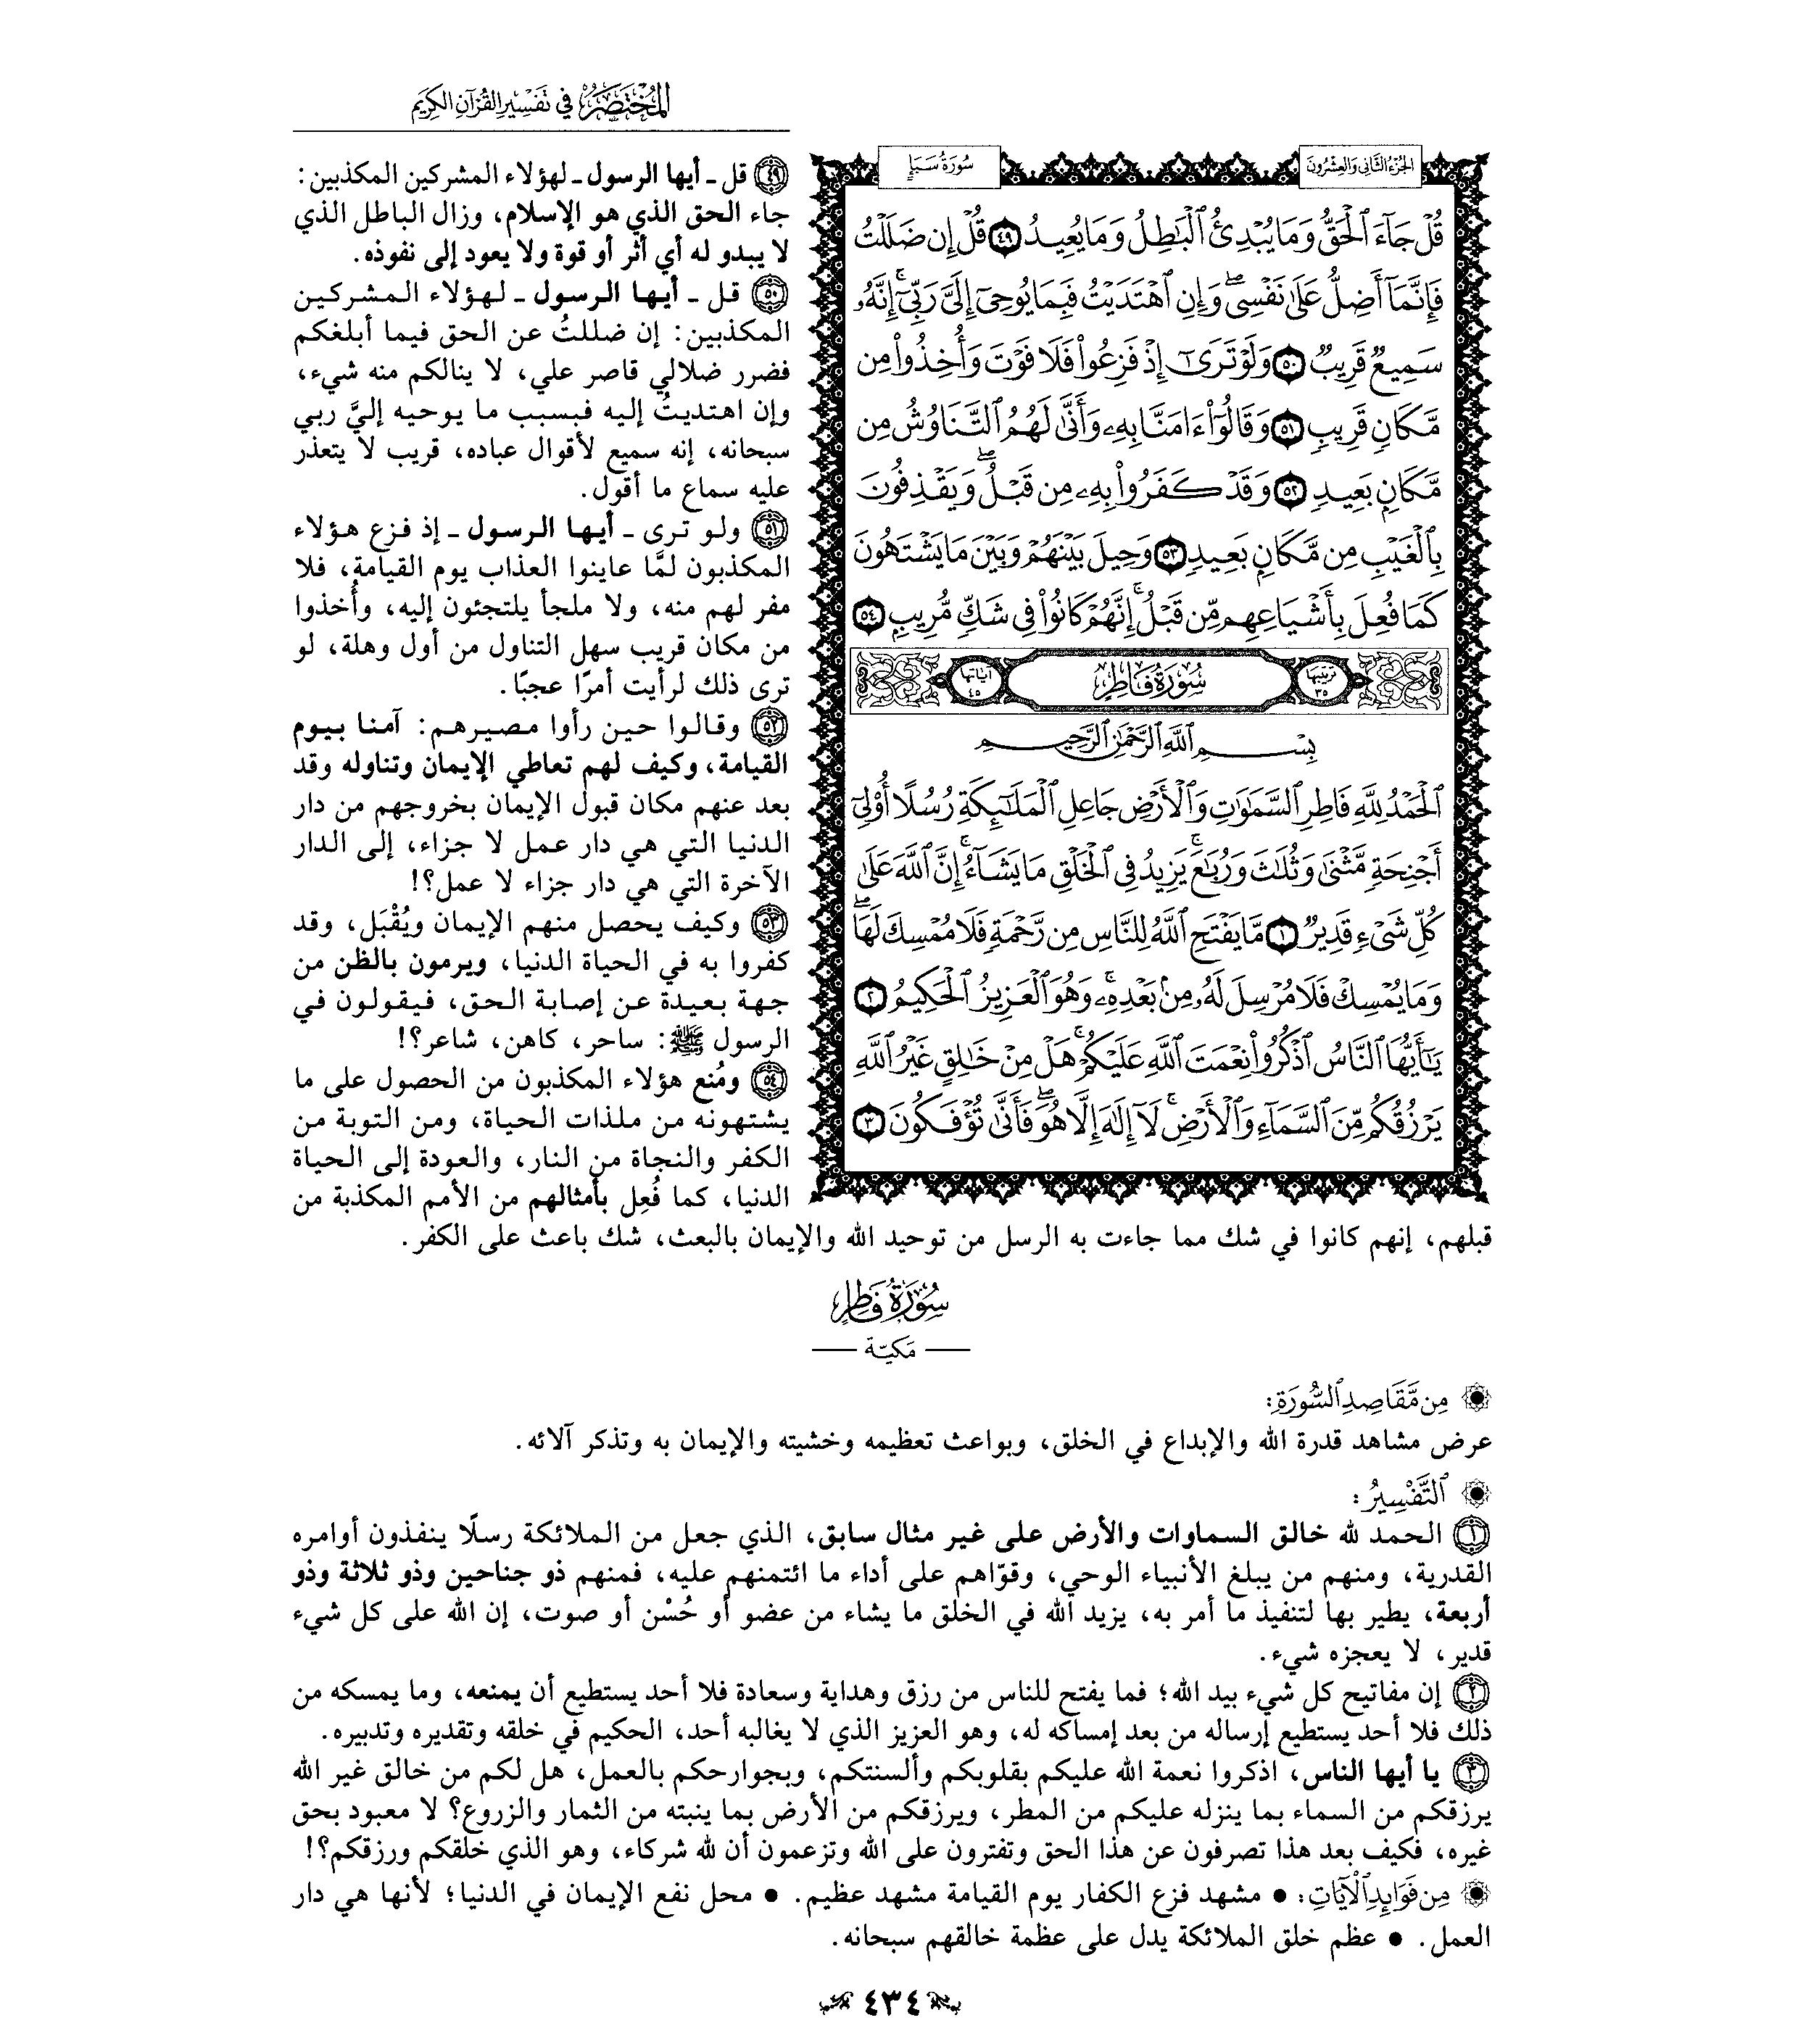 المُخْتَصَرُ فِي تَفْسِيرِ القُرْآنِ الكَرِيمِ
الجُزْءُ الثَّانِي وَالعِشْرُونَ
سُورَةُ سَبَإٍ
قُلْ جَآءَ ٱلْحَقُّ وَمَا يُبْدِئُ ٱلْبَٰطِلُ وَمَا يُعِيدُ ٤٩ قُلْ إِن ضَلَلْتُ
فَإِنَّمَآ أَضِلُّ عَلَىٰ نَفْسِىۖ وَإِنِ ٱهْتَدَيْتُ فَبِمَا يُوحِىٓ إِلَىَّ رَبِّىٓۚ إِنَّهُۥ
سَمِيعٌ قَرِيبٌ ٥٠ وَلَوْ تَرَىٰٓ إِذْ فَزِعُوا۟ فَلَا فَوْتَ وَأُخِذُوا۟ مِن
مَّكَانٍ قَرِيبٍ ٥١ وَقَالُوٓا۟ ءَامَنَّا بِهِۦ وَأَنَّىٰ لَهُمُ ٱلتَّنَاوُشُ مِن
مَّكَانٍۭ بَعِيدٍ ٥٢ وَقَدْ كَفَرُوا۟ بِهِۦ مِن قَبْلُۖ وَيَقْذِفُونَ
بِٱلْغَيْبِ مِن مَّكَانٍۭ بَعِيدٍ ٥٣ وَحِيلَ بَيْنَهُمْ وَبَيْنَ مَا يَشْتَهُونَ
كَمَا فُعِلَ بِأَشْيَاعِهِم مِّن قَبْلُۚ إِنَّهُمْ كَانُوا۟ فِى شَكٍّ مُّرِيبٍۭ ٥٤
ترتيبها ٣٥ سُورَةُ فَاطِرٍ آياتها ٤٥
بِسْمِ ٱللَّهِ ٱلرَّحْمَٰنِ ٱلرَّحِيمِ
ٱلْحَمْدُ لِلَّهِ فَاطِرِ ٱلسَّمَٰوَٰتِ وَٱلْأَرْضِ جَاعِلِ ٱلْمَلَٰٓئِكَةِ رُسُلًا أُو۟لِىٓ
أَجْنِحَةٍ مَّثْنَىٰ وَثُلَٰثَ وَرُبَٰعَۚ يَزِيدُ فِى ٱلْخَلْقِ مَا يَشَآءُۚ إِنَّ ٱللَّهَ عَلَىٰ
كُلِّ شَىْءٍ قَدِيرٌ ١ مَّا يَفْتَحِ ٱللَّهُ لِلنَّاسِ مِن رَّحْمَةٍ فَلَا مُمْسِكَ لَهَاۖ
وَمَا يُمْسِكْ فَلَا مُرْسِلَ لَهُۥ مِنۢ بَعْدِهِۦۚ وَهُوَ ٱلْعَزِيزُ ٱلْحَكِيمُ ٢
يَٰٓأَيُّهَا ٱلنَّاسُ ٱذْكُرُوا۟ نِعْمَتَ ٱللَّهِ عَلَيْكُمْۚ هَلْ مِنْ خَٰلِقٍ غَيْرُ ٱللَّهِ
يَرْزُقُكُم مِّنَ ٱلسَّمَآءِ وَٱلْأَرْضِۚ لَآ إِلَٰهَ إِلَّا هُوَۖ فَأَنَّىٰ تُؤْفَكُونَ ٣
٤٩ قل ـ أيها الرسول ـ لهؤلاء المشركين المكذبين:
جاء الحق الذي هو الإسلام، وزال الباطل الذي
لا يبدو له أي أثر أو قوة ولا يعود إلى نفوذه.
٥٠ قل ـ أيها الرسول ـ لهؤلاء المشركين
المكذبين: إن ضللتُ عن الحق فيما أبلغكم
فضرر ضلالي قاصر علي، لا ينالكم منه شيء،
وإن اهتديتُ إليه فبسبب ما يوحيه إليَّ ربي
سبحانه، إنه سميع لأقوال عباده، قريب لا يتعذر
عليه سماع ما أقول.
٥١ ولو ترى ـ أيها الرسول ـ إذ فزع هؤلاء
المكذبون لمَّا عاينوا العذاب يوم القيامة، فلا
مفر لهم منه، ولا ملجأ يلتجئون إليه، وأُخذوا
من مكان قريب سهل التناول من أول وهلة، لو
ترى ذلك لرأيت أمرًا عجبًا.
٥٢ وقالوا حين رأوا مصيرهم: آمنا بيوم
القيامة، وكيف لهم تعاطي الإيمان وتناوله وقد
بعد عنهم مكان قبول الإيمان بخروجهم من دار
الدنيا التي هي دار عمل لا جزاء، إلى الدار
الآخرة التي هي دار جزاء لا عمل؟!
٥٣ وكيف يحصل منهم الإيمان ويُقْبَل، وقد
كفروا به في الحياة الدنيا، ويرمون بالظن من
جهة بعيدة عن إصابة الحق، فيقولون في
الرسول ﷺ: ساحر، كاهن، شاعر؟!
٥٤ ومُنع هؤلاء المكذبون من الحصول على ما
يشتهونه من ملذات الحياة، ومن التوبة من
الكفر والنجاة من النار، والعودة إلى الحياة
الدنيا، كما فُعِل بأمثالهم من الأمم المكذبة من
قبلهم، إنهم كانوا في شك مما جاءت به الرسل من توحيد الله والإيمان بالبعث، شك باعث على الكفر.
سُورَةُ فَاطِرٍ
مَكيّة
مِن مَّقَاصِدِ ٱلسُّورَةِ:
عرض مشاهد قدرة الله والإبداع في الخلق، وبواعث تعظيمه وخشيته والإيمان به وتذكر آلائه.
ٱلتَّفْسِيرُ:
١ الحمد لله خالق السماوات والأرض على غير مثال سابق، الذي جعل من الملائكة رسلًا ينفذون أوامره
القدرية، ومنهم من يبلغ الأنبياء الوحي، وقوّاهم على أداء ما ائتمنهم عليه، فمنهم ذو جناحين وذو ثلاثة وذو
أربعة، يطير بها لتنفيذ ما أمر به، يزيد الله في الخلق ما يشاء من عضو أو حُسْن أو صوت، إن الله على كل شيء
قدير، لا يعجزه شيء.
٢ إن مفاتيح كل شيء بيد الله؛ فما يفتح للناس من رزق وهداية وسعادة فلا أحد يستطيع أن يمنعه، وما يمسكه من
ذلك فلا أحد يستطيع إرساله من بعد إمساكه له، وهو العزيز الذي لا يغالبه أحد، الحكيم في خلقه وتقديره وتدبيره.
٣ يا أيها الناس، اذكروا نعمة الله عليكم بقلوبكم وألسنتكم، وبجوارحكم بالعمل، هل لكم من خالق غير الله
يرزقكم من السماء بما ينزله عليكم من المطر، ويرزقكم من الأرض بما ينبته من الثمار والزروع؟ لا معبود بحق
غيره، فكيف بعد هذا تصرفون عن هذا الحق وتفترون على الله وتزعمون أن لله شركاء، وهو الذي خلقكم ورزقكم؟!
مِن فَوَائِدِ ٱلْآيَاتِ: ● مشهد فزع الكفار يوم القيامة مشهد عظيم. ● محل نفع الإيمان في الدنيا؛ لأنها هي دار
العمل. ● عظم خلق الملائكة يدل على عظمة خالقهم سبحانه.
٤٣٤